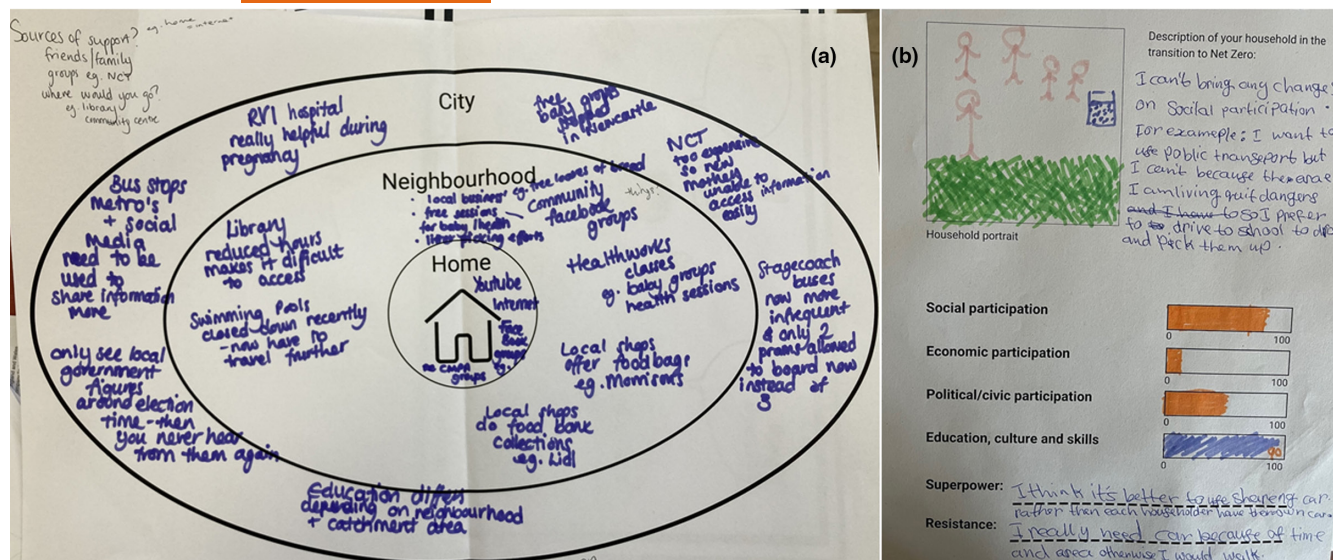 Sources of support?
eg. home
= internet
friends/family
groups eg. NCT
where would you go?
eg. library
community centre
(a)
City
RVI hospital
really helpful during
pregnancy
free
baby groups
helped
in Newcastle
NCT
too expensive
so new
mothers
unable to
access information
easily
Bus stops
metro's
+ social
media
need to be
used to
share information
more
only see local
government
figures
around election
time - then
you never hear
from them again
Stagecoach
buses
now more
infrequent
& only 2
prams allowed
to board now
instead of
3
Education differs
depending on neighbourhood
+ catchment area
Neighbourhood
• local business eg. free loaves of bread
things?
• free sessions
for baby/health
• litter picking efforts
Community
facebook
groups
Library
reduced hours
makes it difficult
to access
Swimming Pools
closed down recently
- now have to
travel further
Healthworks
classes
eg. baby groups
health sessions
Local shops
offer food bags
eg. Morrisons
Local shops
do food bank
collections
eg. Lidl
Home
Youtube
Internet
Face
Book
groups
eg.
no CMPA
groups
(b)
Household portrait
Description of your household in the
transition to Net Zero:
I can't bring any change
on Socital participation.
For exameple: I want to
use poblic transeport but
I can't because there arae
I am living quit dangons
and I have to so I prefer
to drive to school to
and Pick them up.
Social participation
0 100
Economic participation
0 100
Political/civic participation
0 100
Education, culture and skills
90
0 100
Superpower: I think it's better to use shareng car
rather than each householder have them own car.
Resistance: I really need car because of time
and area otherwise I would walk